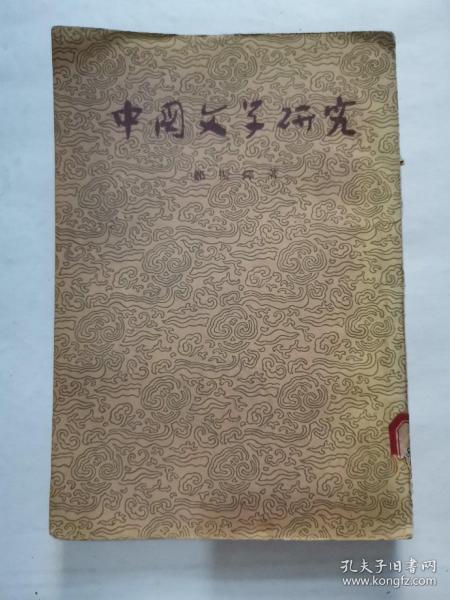 中国文学研究
郑振鐸著
孔夫子旧书网
www.kongfz.com